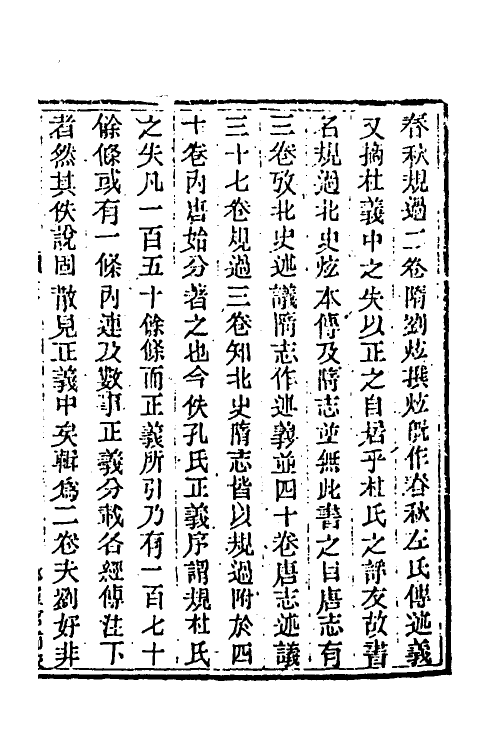 春秋規過二卷隋劉炫撰炫旣作春秋左氏傳述義
又摘杜義中之失以正之自居乎杜氏之諍友故書
名規過北史炫本傳及隋志並無此書之目唐志有
三卷攷北史述議隋志作述義並四十卷唐志述議
三十七卷規過三卷知北史隋志皆以規過附於四
十卷內唐始分著之也今佚孔氏正義序謂規杜氏
之失凡一百五十餘條而正義所引乃有一百七十
餘條或有一條內連及數事正義分載各經傳注下
者然其佚說固散見正義中矣輯爲二卷夫劉好非